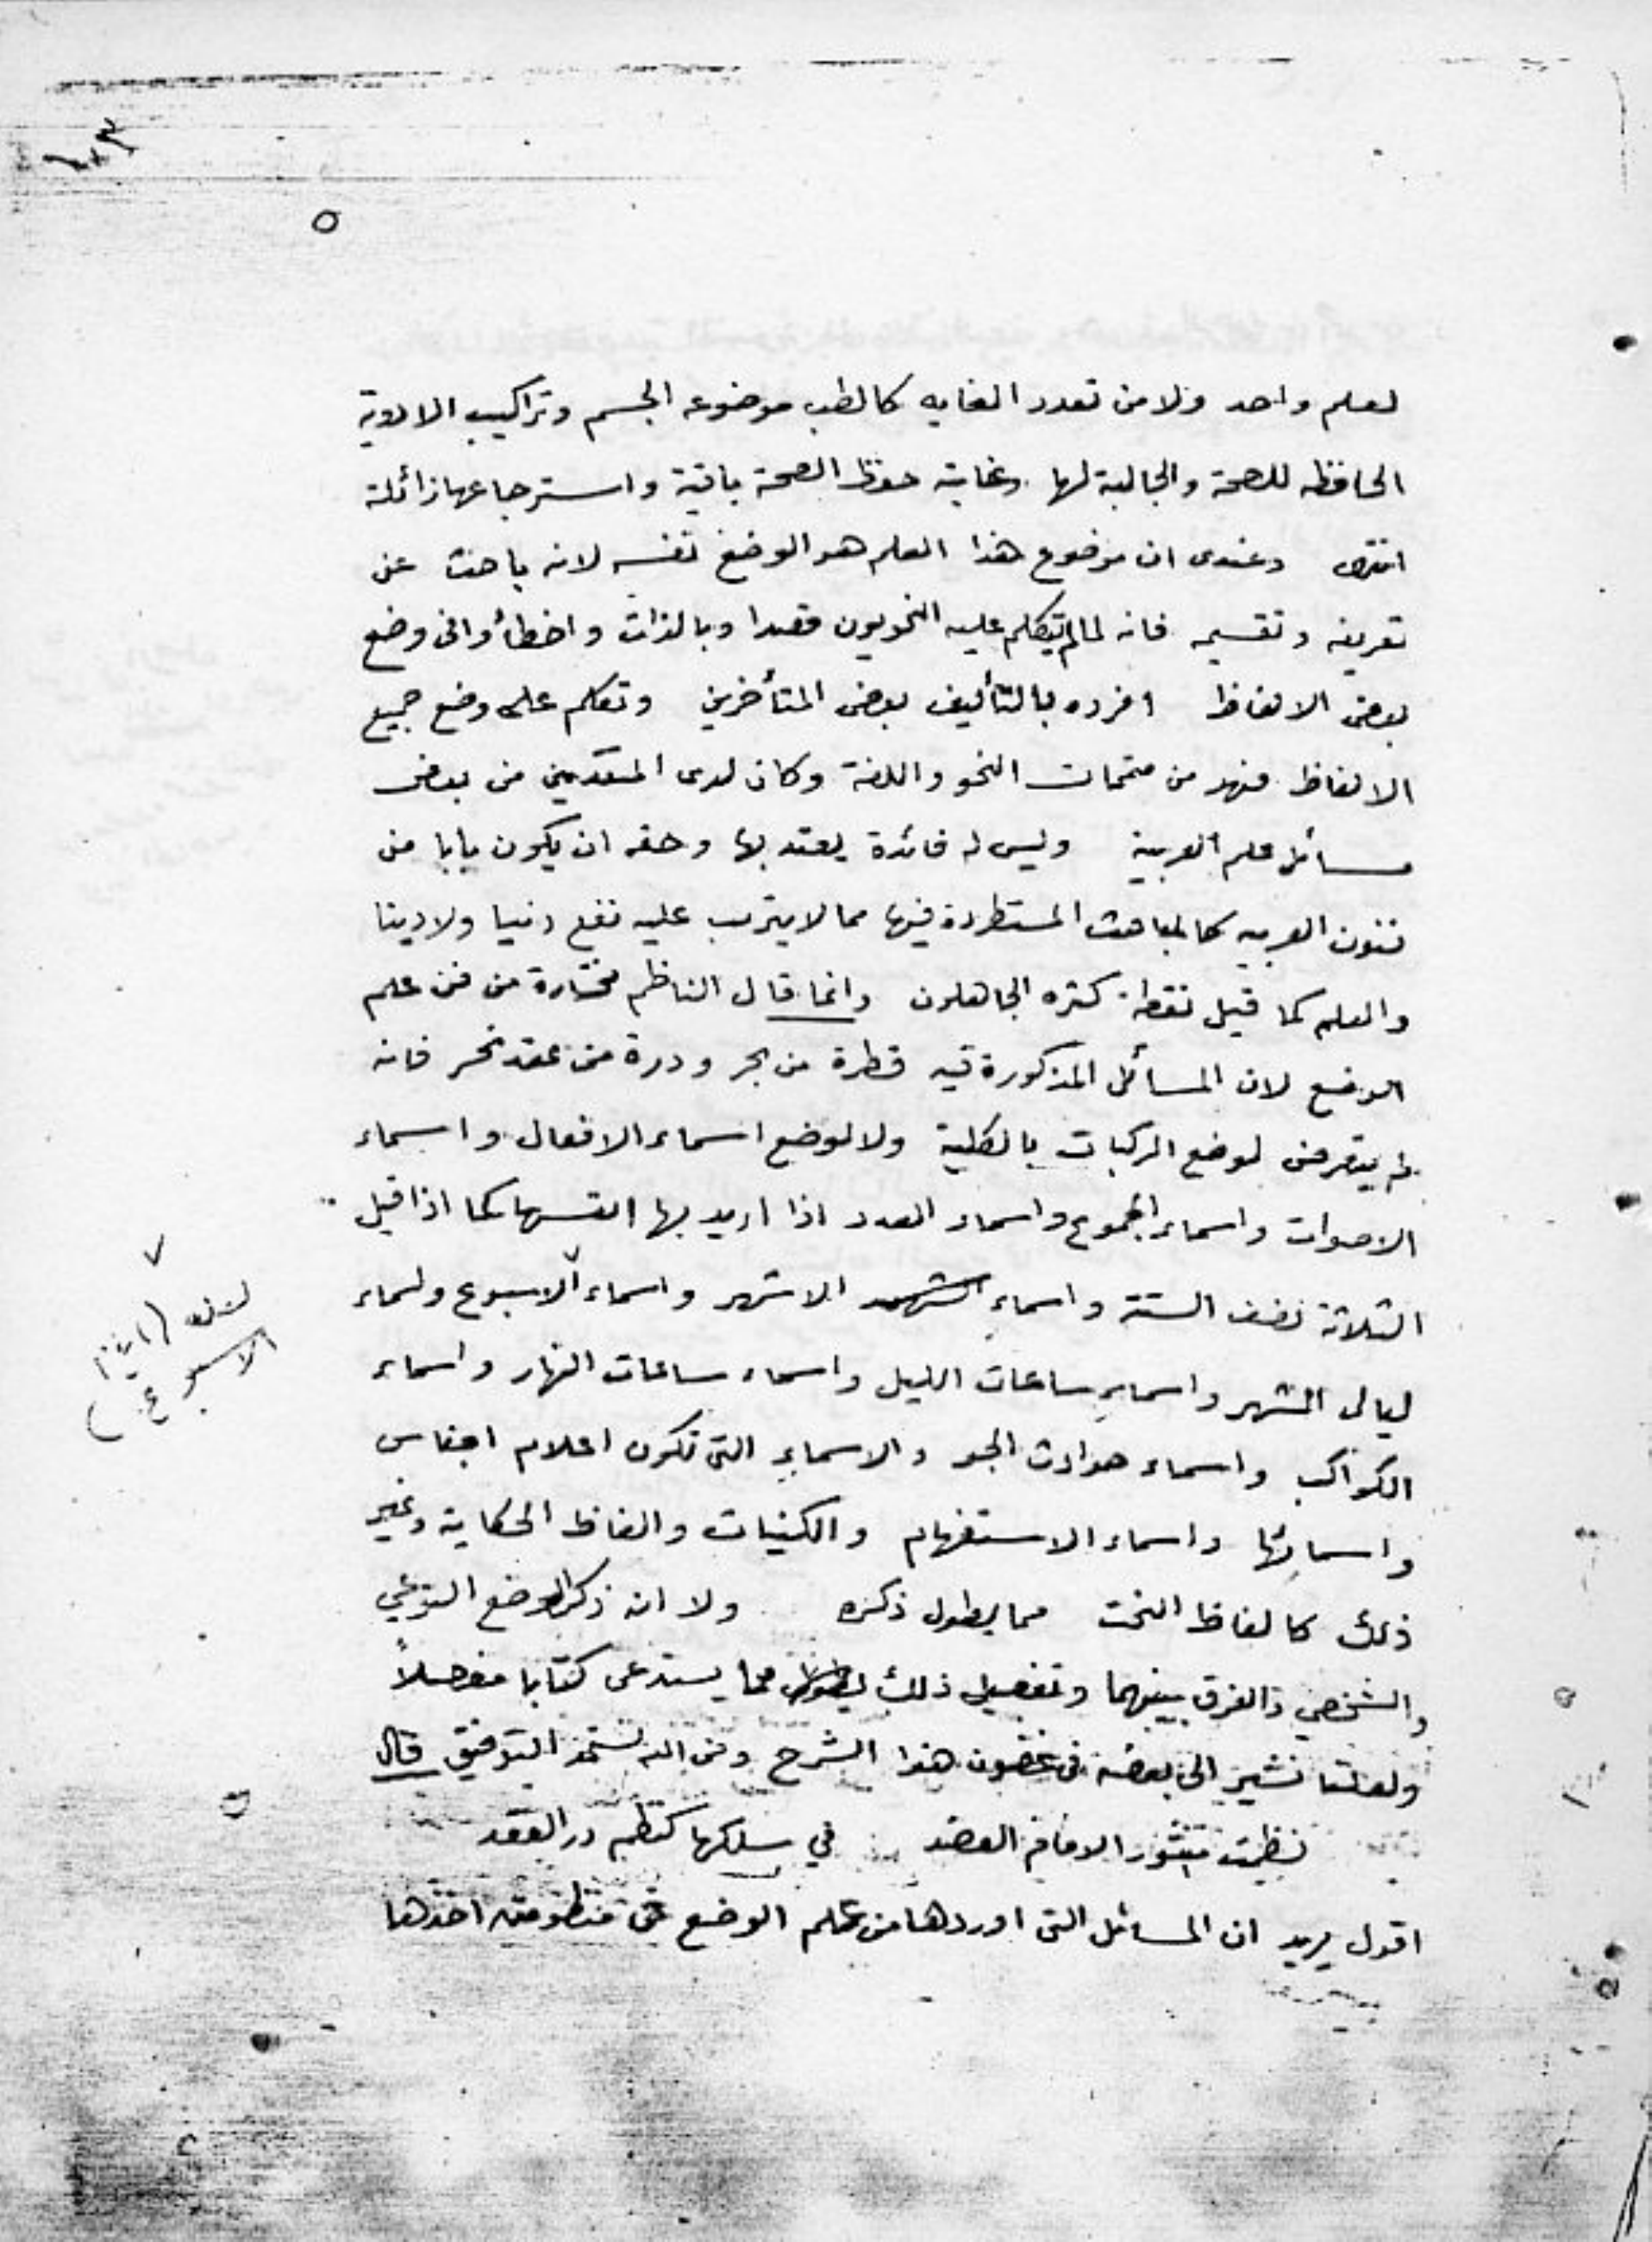 ١٠٣
٥
لعلم واحد ولا من تعدد الغايه كالطب موضوعه الجسم وتراكيب الادوية
الحافظه للصحة والجالبة لها وغايته حفظ الصحة باقية واسترجاعها زائلة
انتهى وعندى ان موضوع هذا العلم هو الوضع نفسه لانه باحث عن
تعريفه وتقسيمه فانه لما لم يتكلم عليه النحويون قصدا وبالذات واخطأوا فى وضع
بعض الالفاظ افرده بالتأليف بعض المتأخرين وتكلم على وضع جميع
الالفاظ فهو من متممات النحو واللغة وكان لدى المتقدمين من بعض
مسائل علم العربية وليس له فائدة يعتد بها وحقه ان يكون بابا من
فنون العربيه كالمباحث المستطردة فيها مما لا يترتب عليه نفع دنيا ولا دينا
والعلم كما قيل نقطة كثره الجاهلون وانما قال الناظم مختارة من فن علم
الوضع لان المسائل المذكورة فيه قطرة من بحر ودرة من عقد نحر فانه
لم يتعرض لوضع المركبات بالكلية ولا لوضع اسماء الافعال واسماء
الاصوات واسماء الجموع واسماء العدد اذا اريد بها انفسها كما اذا قيل
الثلاثة نصف الستة واسماء الشهور الاشهر واسماء ٧ الاسبوع واسماء
ليالى الشهر واسماء ساعات الليل واسماء ساعات النهار واسماء
الكواكب واسماء حوادث الجو والاسماء التى تكون اعلام اجناس
واسمائها واسماء الاستفهام والكنيات والفاظ الحكاية وغير
ذلك كالفاظ النحت مما يطول ذكره ولا انه ذكر الوضع النوعي
والشخصي والفرق بينهما وتفصيل ذلك يطول مما يستدعى كتابا مفصلاً
ولعلنا نشير الى بعضه فى غضون هذا الشرح ومن الله نستمد التوفيق قال
نظمت منثور الامام العضد في سلكها كنظم در العقد
اقول يريد ان المسائل التى اوردها من علم الوضع فى منظومته اخذها
٧
لعله (ايام
الاسبوع)